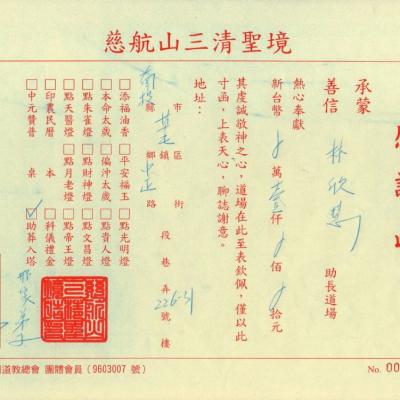 慈航山三清聖境
承蒙
善信 林欣慧 助長道場
熱心奉獻
新台幣 萬壹仟 佰 拾元
其虔誠敬神之心，道場在此至表欽佩，僅以此
寸函，上表天心，聊誌謝意。
地址：
南投 縣市 鄉鎮區 中正 路街 段 巷 弄 226-31 號 樓
□添福油香 □平安福玉 □點光明燈
□本命太歲 □偏沖太歲 □點貴人燈
□點朱雀燈 □點財神燈 □點文昌燈
□點天醫燈 □點月老燈 □點帝王燈
□印農民曆 本 □科儀禮金
□中元贊普 桌 ☑助葬入塔
道教總會 團體會員（9603007 號）
No. 00